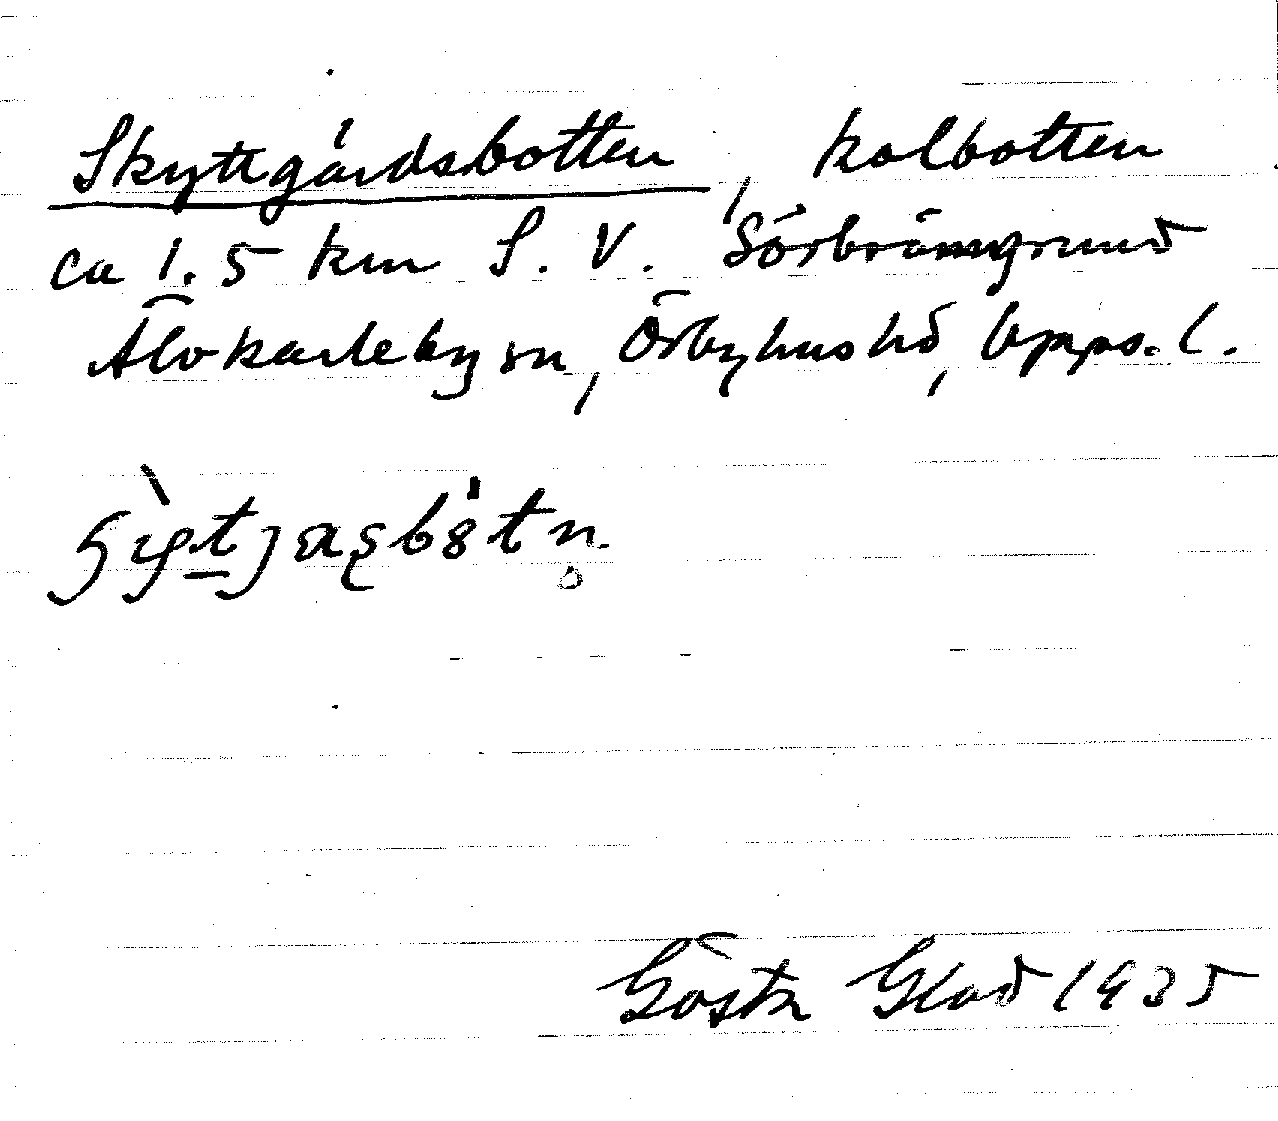 Skyttgårdsbotten, kolbotten
ca 1.5 km S. V. Sörbrämsgrund
Älvkarleby sn, Örbyhus hd, Upps. l.
Gösta Glad 1935